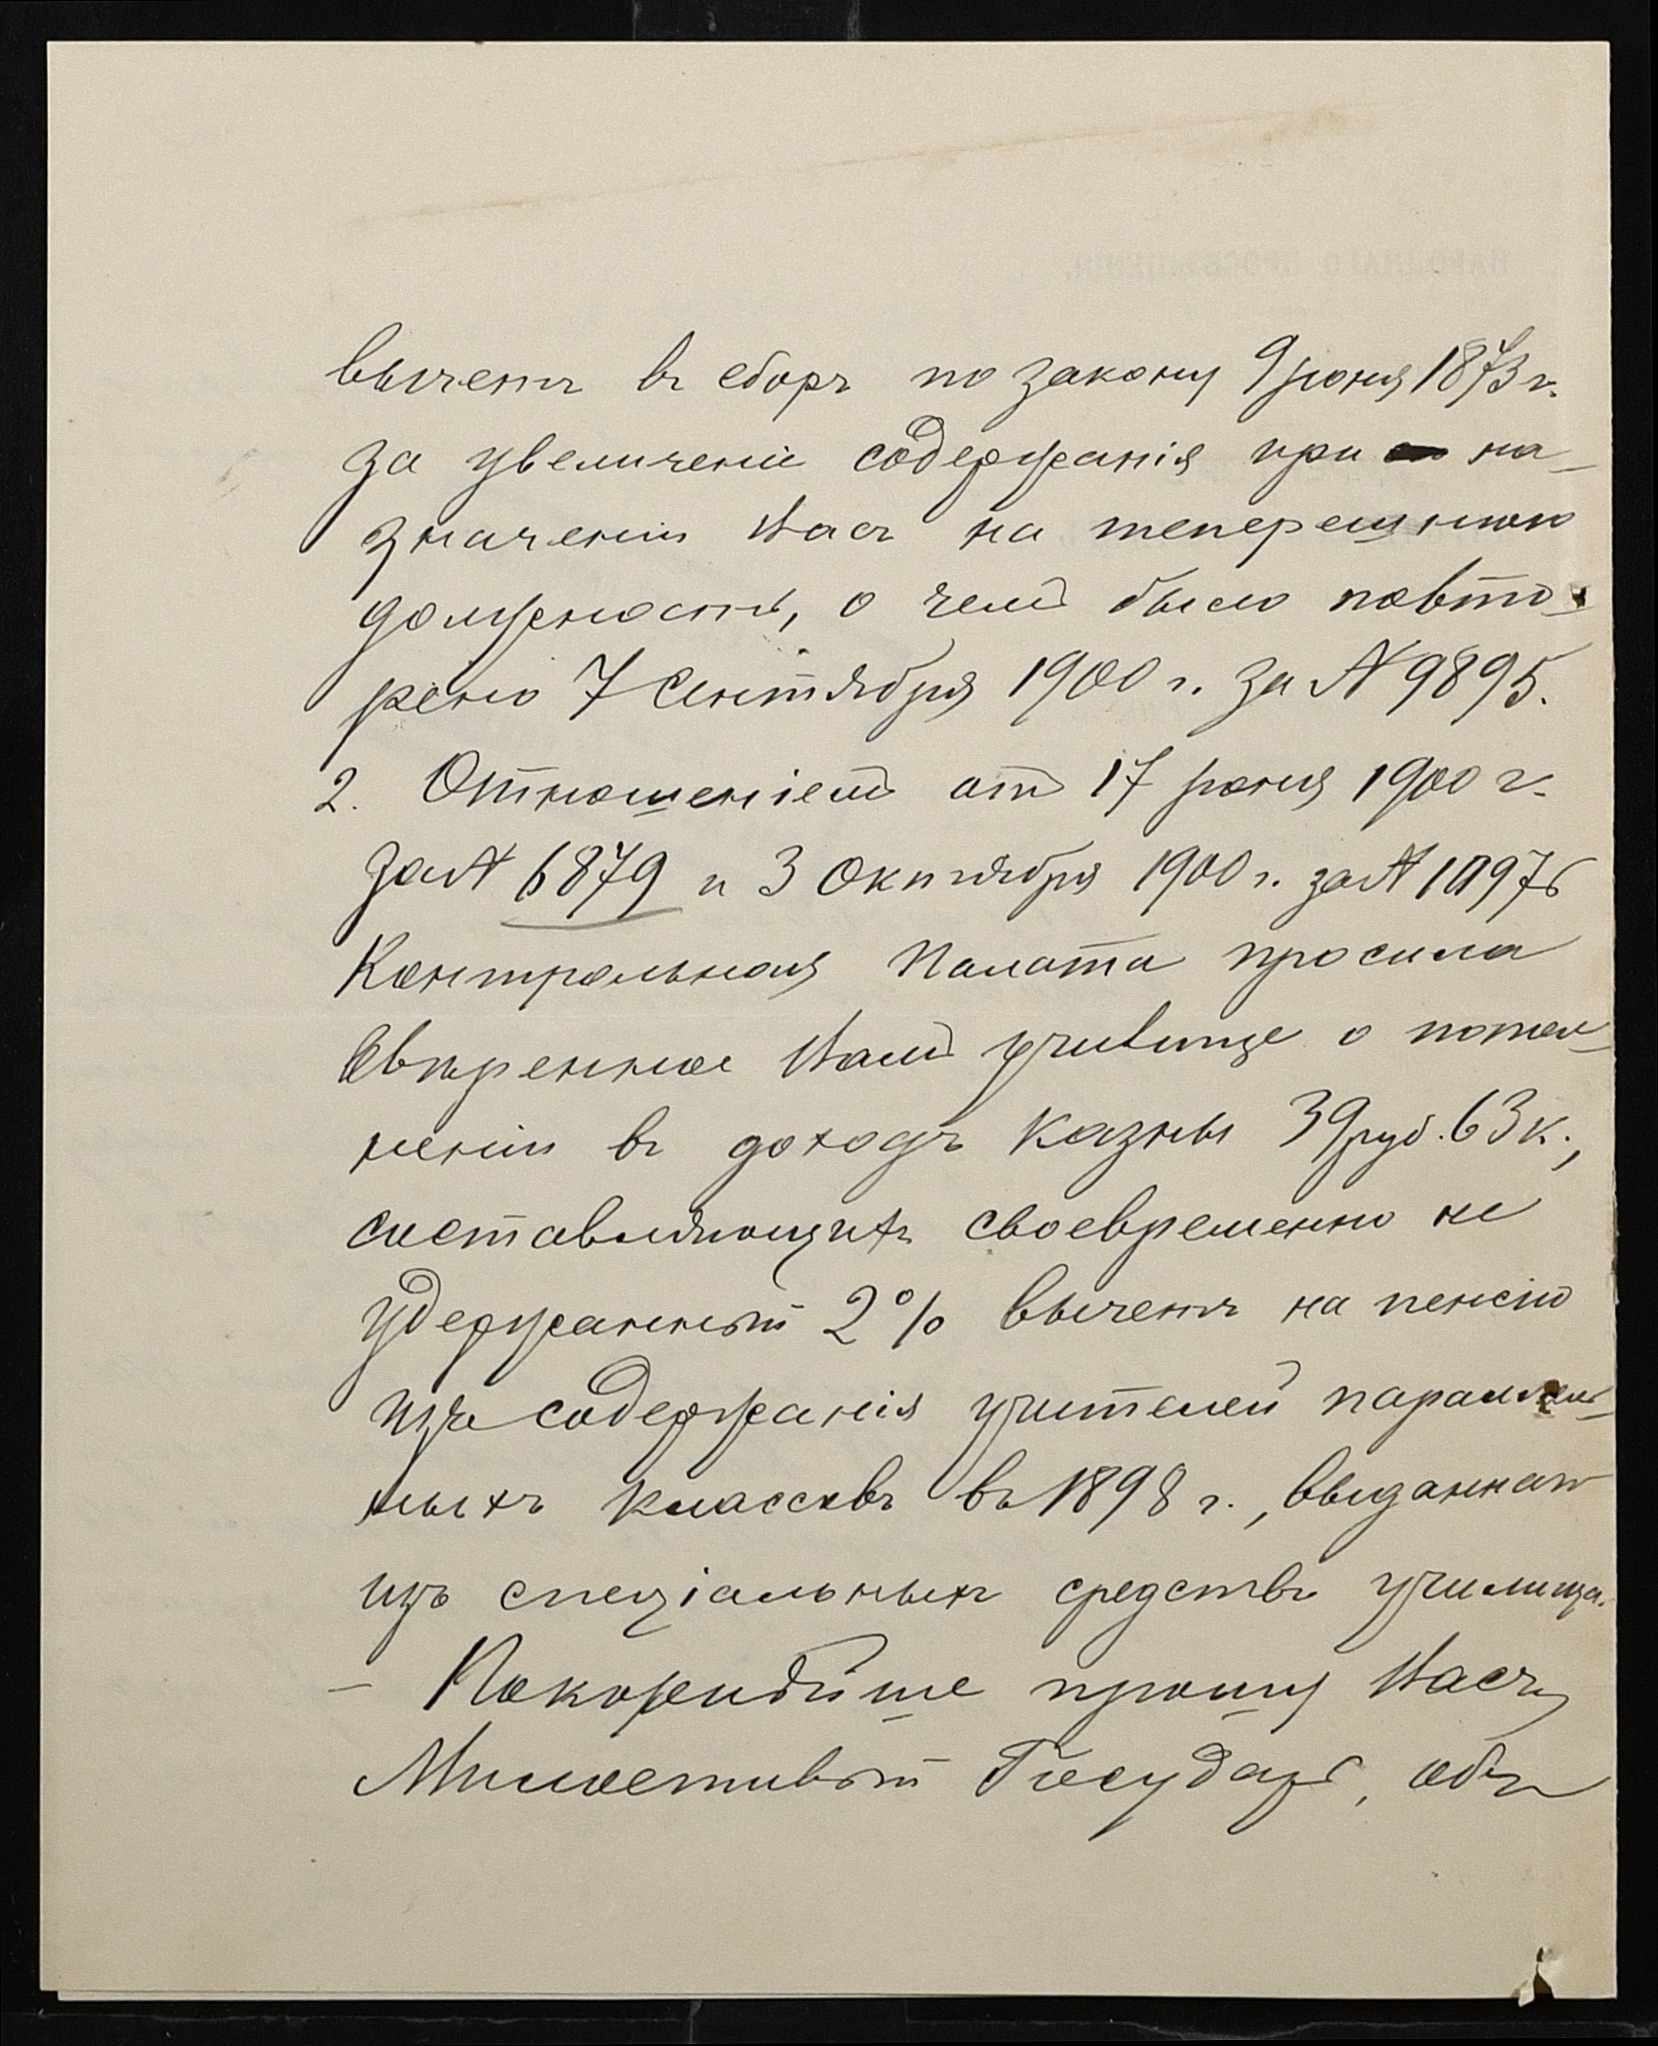 вычетъ въ сборъ по закону 9 іюня 1873 г.
за увеличеніе содержанія при на-
значеніи Васъ на теперешнюю
должность, о чемъ было повто-
рено 7 Сентября 1900 г. за № 9895.
2. Отношеніемъ отъ 17 іюня 1900 г.
за № 6879 и 3 Октября 1900 г. за № 10976
Контрольная Палата просила
ввѣренное Вамъ училище о попол-
неніи въ доходъ казны 39 руб. 63 к.,
составляющихъ своевременно не
удержанный 2% вычетъ на пенсію
изъ содержанія учителей параллель-
ныхъ классовъ въ 1898 г., выданнаго
изъ спеціальныхъ средствъ училища.
– Покорнѣйше прошу Васъ,
Милостивый Государь, объ